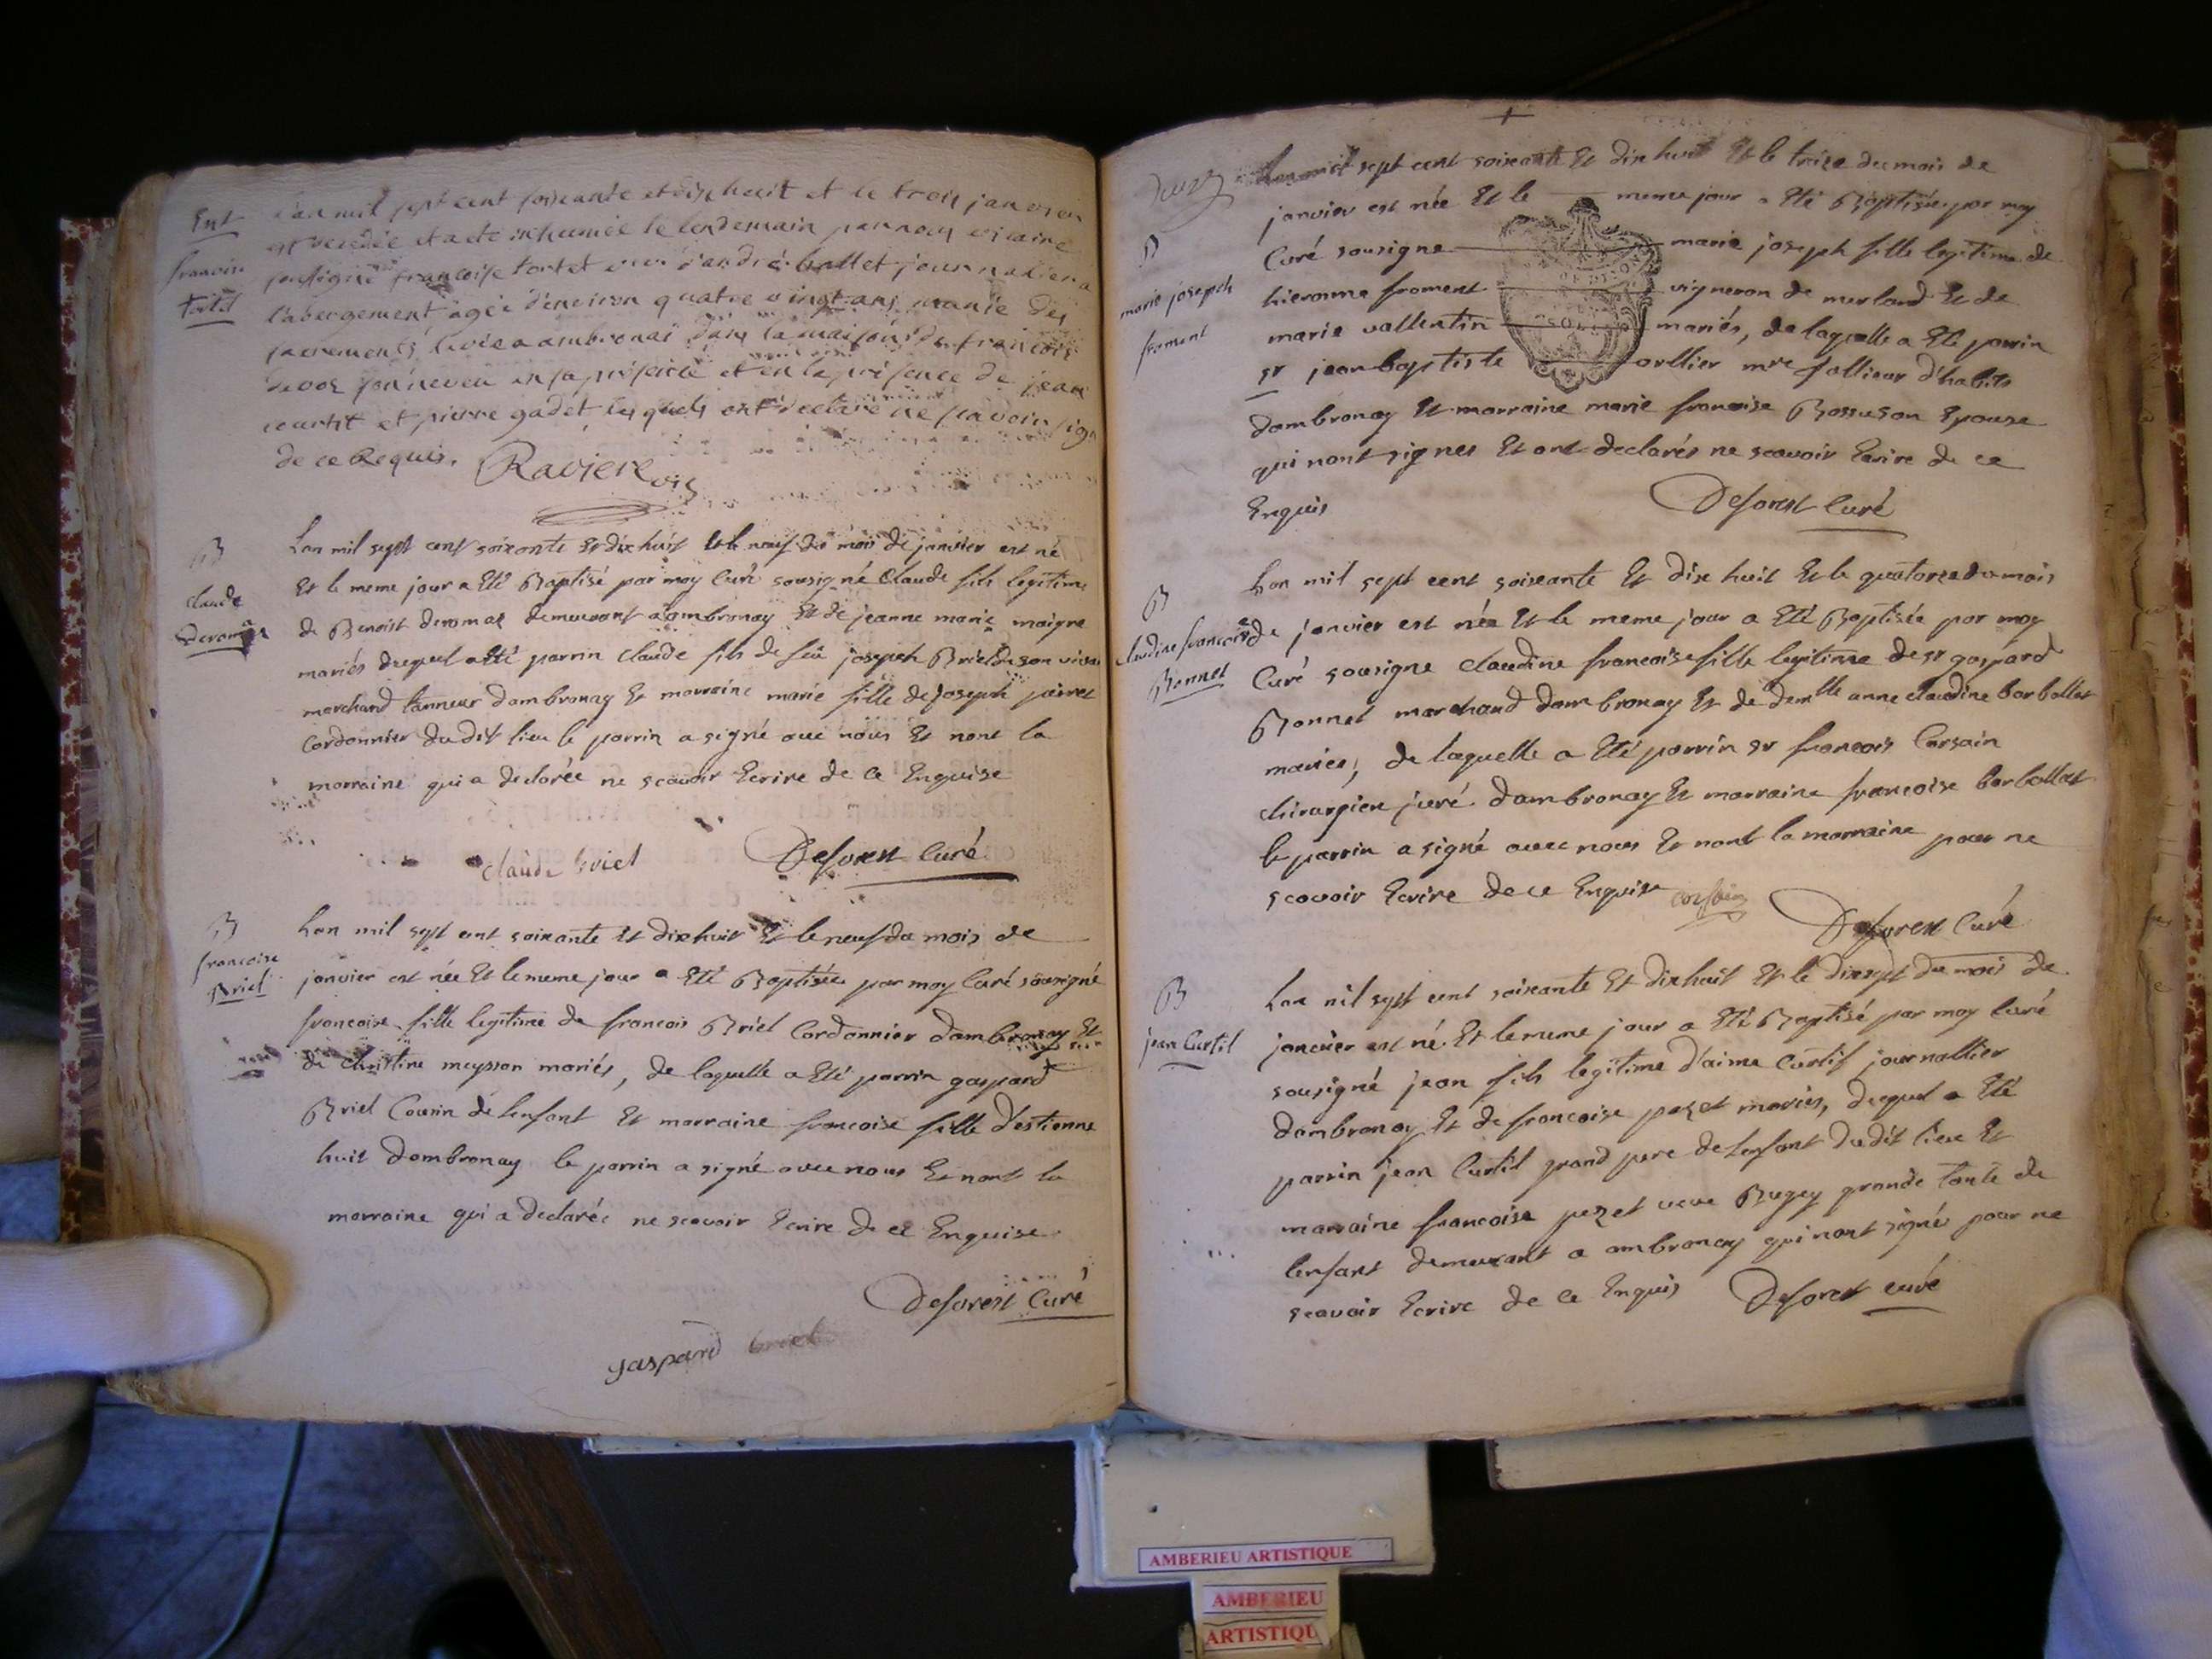 Ent
francoise
tortel
L'an mil sept cent soixante et dix huit et le trois janvier
est decedée et a ete inhumée le lendemain par nous vicaire
soussigné francoise tortet veve d'andré ballet journalier a
l'abergement agée d'environ quatre vingt ans munie des
sacrements, decedée a ambronai dans la maison de francois
son neveu en sa présence et en la présence de jean
courtit et pierre gadet, les quels ont declaré ne scavoir sign
de ce Requis. Raviere vic
B
claude
deromas
Lan mil sept cent soixante Et dix huit Et le neuf du mois de janvier est né
Et le meme jour a Eté Baptisé par moy Curé sousigné Claude fils legitime
de Benoist deromas demeurant a ambronay Et de jeanne marie maigne
mariés duquel a Eté parrin claude fils de feu joseph Briel de son vivan
marchand tanneur dambronay Et marraine marie fille de Joseph peirret
Cordonnier du dit lieu le parrin a signé avec nous Et nont la
marraine qui a declarée ne scavoir Ecrire de Ce Enquise
claude briel Deforest Curé
B
francoise
Briel
Lan mil sept cent soixante Et dix huit Et le neuf du mois de
janvier est née Et le meme jour a Eté Baptisée par moy Curé sousigné
francoise fille legitime de francois Briel Cordonnier dambronay Et
de christine meysson mariés, de laquelle a Eté parrin gaspard
Briel Cousin de lenfant Et marraine francoise fille d'estienne
huit dambronay le parrin a signé avec nous Et nont la
marraine qui a declarée ne scavoir Ecrire de ce Enquise
Deforest Curé
gaspard briel
deuze
B
marie joseph
froment
Lan mil sept cent soixante Et dix huit Et le treize du mois de
janvier est née Et le meme jour a Eté Baptisée par moy
Curé sousigne marie joseph fille legitime de
hieronme froment vigneron de merland Et de
marie vallentin mariés, de laquelle a Eté parrin
sr jean baptiste orllier mre tallieur d'habits
dambronay Et marraine marie francoise Bossuson Epouse
qui nont signes Et ont declarés ne scavoir Ecrire de ce
Enquis Deforest Curé
B
claudine francoise
Bonnet
Lan mil sept cent soixante Et dix huit Et le quatorze du mois
de janvier est née Et le meme jour a Eté Baptisée par moy
Curé sousigne claudine francoise fille legitime de sr gaspard
Bonnet marchand dambronay Et de demlle anne claudine barbollat
mariés, de laquelle a Eté parrin sr francois Corsain
chirurgien juré dambronay Et marraine francoise barbollat
le parrin a signé avec nous Et nont la marraine pour ne
scavoir Ecrire de ce Enquise corsain Deforest Curé
B
jean Curtil
Lan mil sept cent soixante Et dix huit Et le dixsept du mois de
janvier est né Et le meme jour a Eté Baptisé par moy Curé
sousigné jean fils legitime d'aime Curtil journallier
dambronay Et de francoise pezet mariés, duquel a Eté
parrin jean Curtil grand pere de lenfant du dit lieu Et
marraine francoise pezet veve Bugey grande tante de
lenfant demeurant a ambronay qui nont signés pour ne
scavoir Ecrire de Ce Enquis Deforest curé
AMBERIEU ARTISTIQUE
AMBERIEU
ARTISTIQU